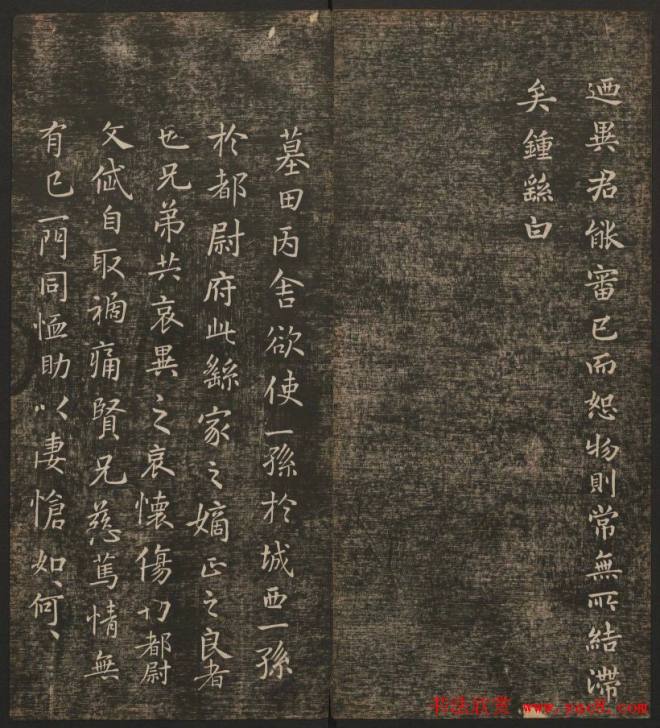 迺異君能審已而恕物則常無所結滯
矣鍾繇白
墓田丙舍欲使一孫於城西一孫
於都尉府此繇家之嫡正之良者
也兄弟共哀異之哀懷傷切都尉
文岱自取禍痛賢兄慈篤情無
有已一門同恤助以悽愴如何、
书法欣赏 www.yac8.com